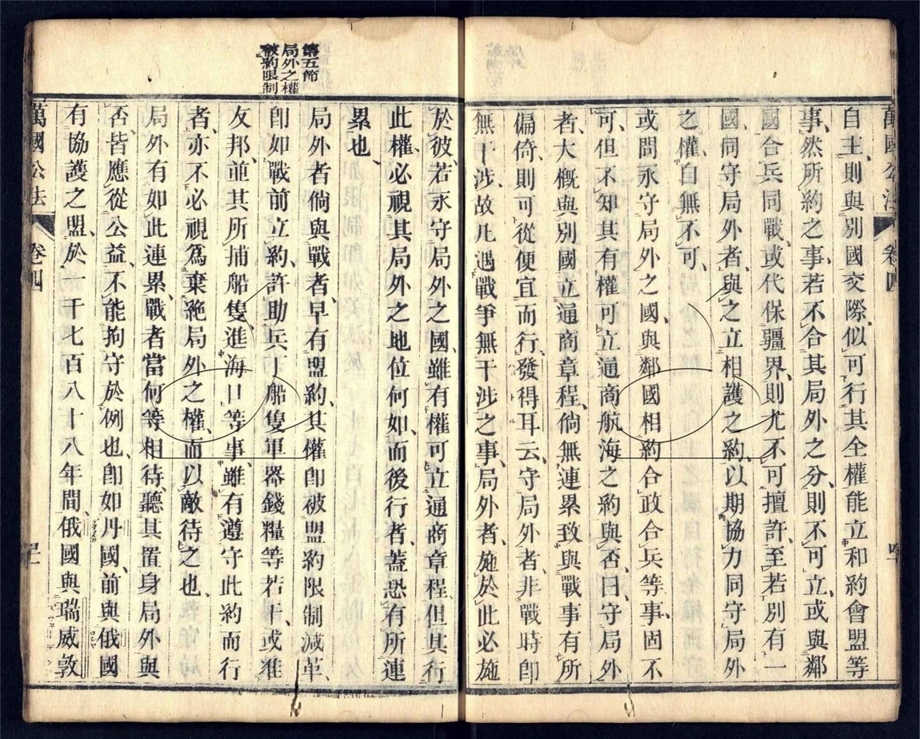 萬國公法 卷四
自主、則與別國交際、似可行其全權、能立和約會盟等
事、然所約之事、若不合其局外之分、則不可立、或與鄰
國合兵同戰、或代保疆界、則尤不可擅許、至若別有一
國同守局外者、與之立相護之約、以期協力同守局外
之權、自無不可、
或問永守局外之國、與鄰國相約合政合兵等事、固不
可、但不知其有權可立通商航海之約與否、曰、守局外
者、大概與別國立通商章程、倘無連累致與戰事有所
偏倚、則可從便宜而行、發得耳云、守局外者、非戰時卽
無干涉、故凡遇戰爭無干涉之事、局外者施於此、必施
於彼、若永守局外之國、雖有權可立通商章程、但其行
此權、必視其局外之地位何如、而後行者、蓋恐有所連
累也、
第五節
局外之權
被約限制
局外者倘與戰者早有盟約、其權卽被盟約限制減革、
卽如戰前立約、許助兵丁船隻軍器錢糧等若干、或准
友邦並其所捕船隻進海口等事、雖有遵守此約而行
者、亦不必視爲棄絕局外之權、而以敵待之也、
局外有如此連累、戰者當何等相待、聽其置身局外與
否、皆應從公益、不能拘守於例也、卽如丹國、前與俄國
有協護之盟、於一千七百八十八年間、俄國與瑞威敦
萬國公法 卷四